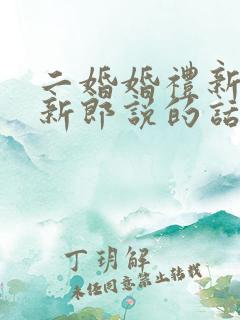 二婚婚禮新
新郎說的話
丁玥解
未經同意禁止轉載